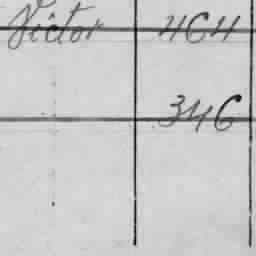 Victor 464
346